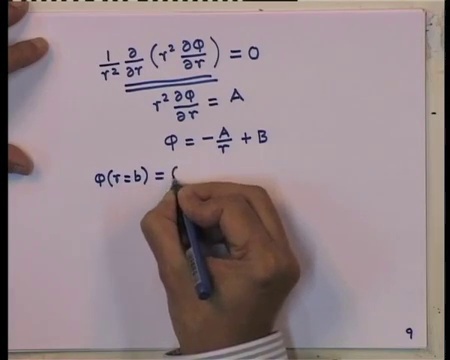 1/r² ∂/∂r (r² ∂φ/∂r) = 0
r² ∂φ/∂r = A
φ = - A/r + B
φ(r=b) =
9